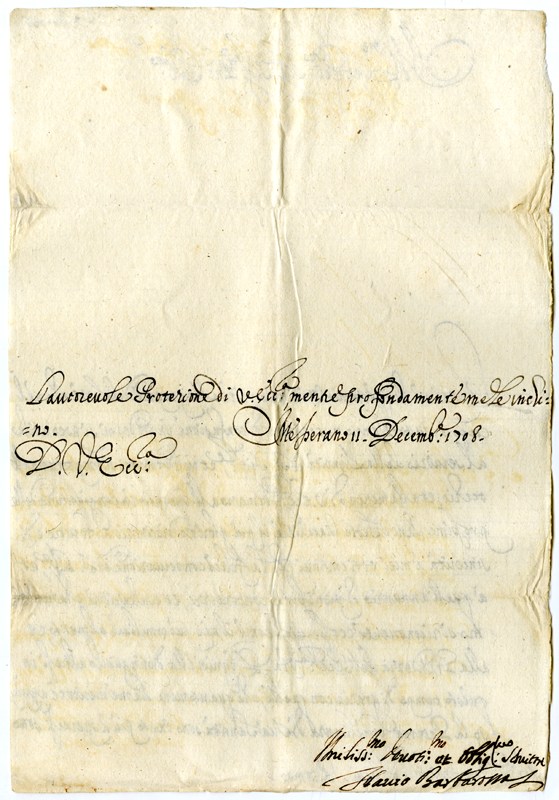 L'autorevole Protezione di V. Ecc.ª mentre profondamente me le inchi:
=no.
Messerano 11. Decemb.e 1708.
D. V. Ecc.za
Umiliss.mo Devoti.mo et Oblig.mo Servitre
Flavio Barbarossa